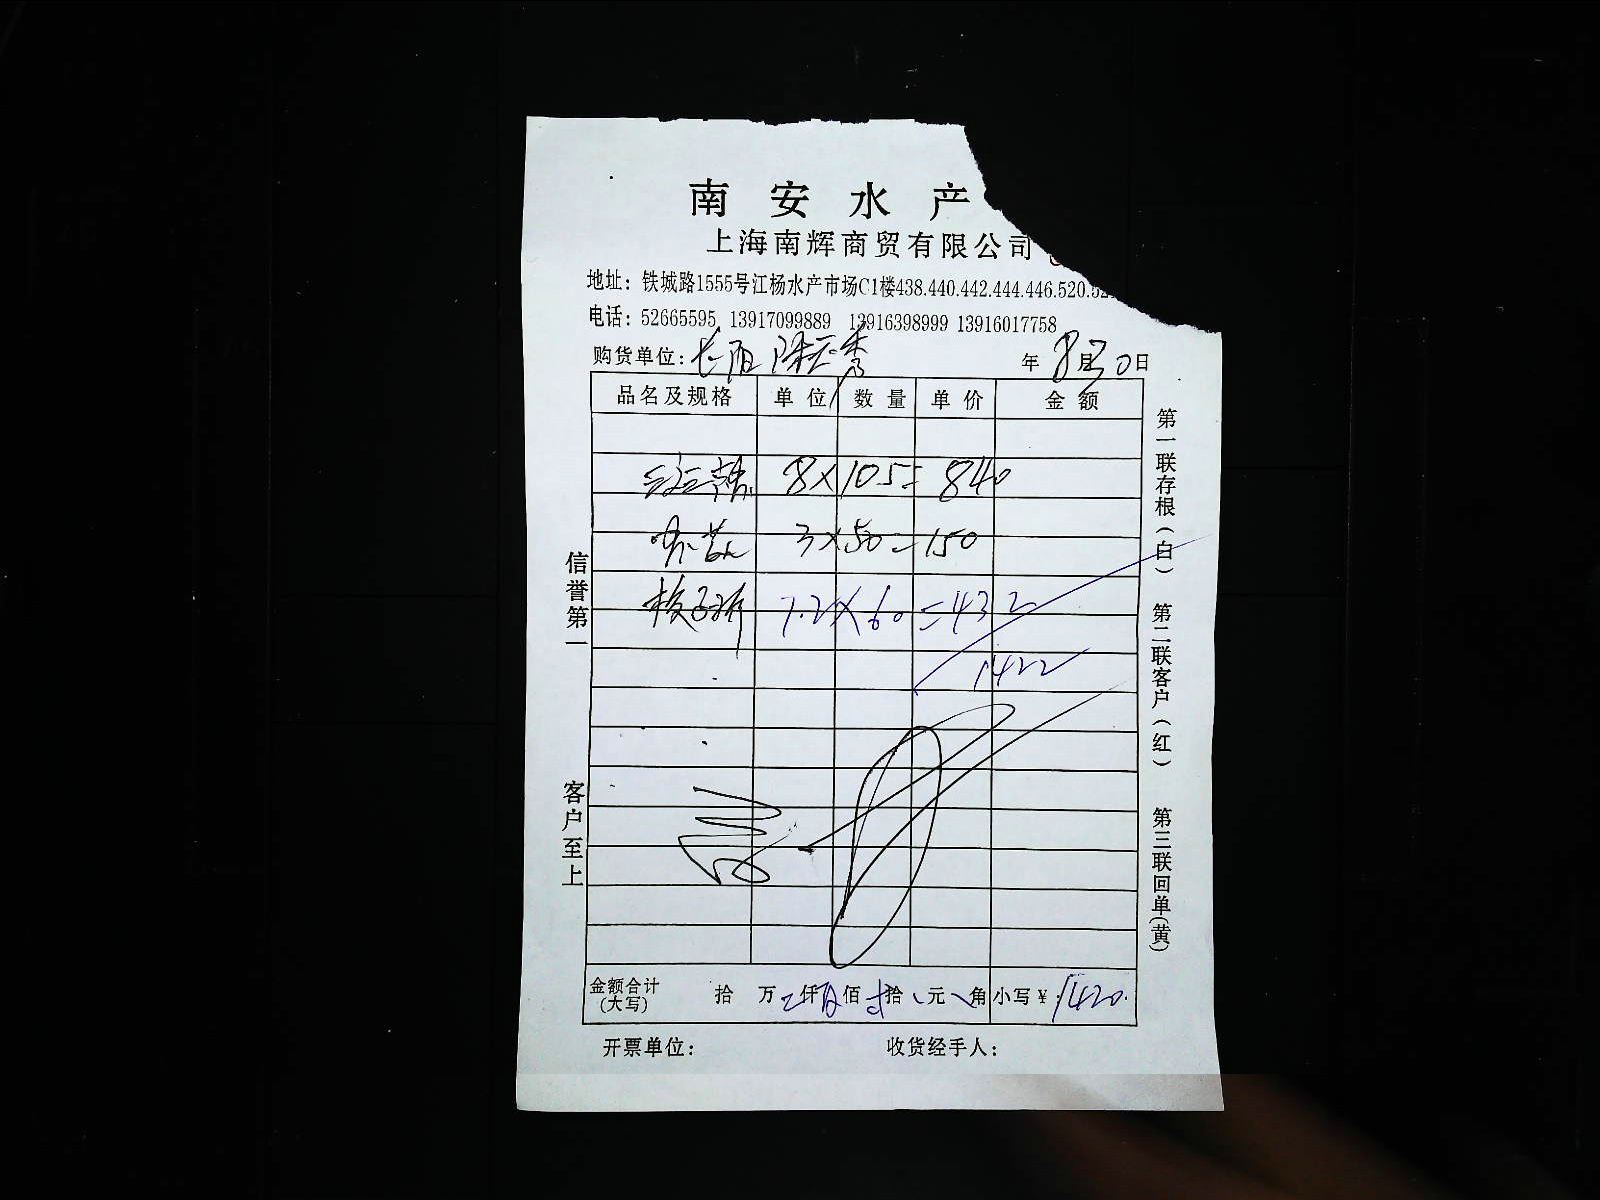 南安水产
上海南辉商贸有限公司
地址：铁城路1555号江杨水产市场C1楼438.440.442.444.446.520.52
电话：52665595 13917099889 13916398999 13916017758
购货单位：长阳 陈秀 年8月30日
品名及规格 单位 数量 单价 金额
三文 8×105=840
3×50=150
7.2×60=432
1422
金额合计（大写） 拾 万 仟 佰 拾 元 角 小写￥：1420.
开票单位： 收货经手人：
信誉第一 客户至上
第一联存根（白） 第二联客户（红） 第三联回单（黄）